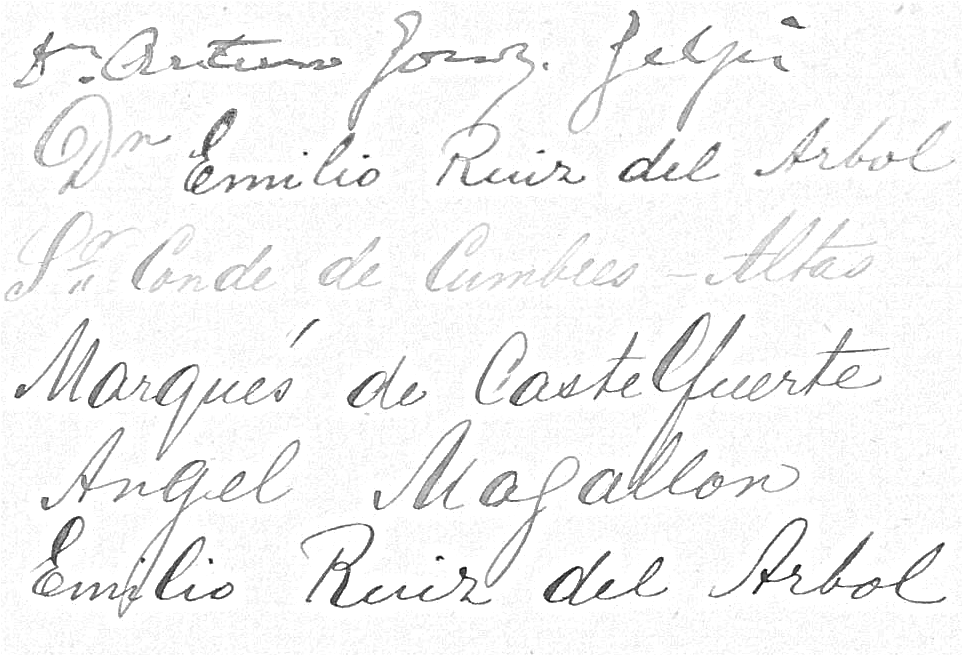 Dn. Arturo Gonz. Gelpí
Dn Emilio Ruiz del Arbol
Sor. Conde de Cumbres - Altas
Marqués de Castelfuerte
Angel Magallon
Emilio Ruiz del Arbol